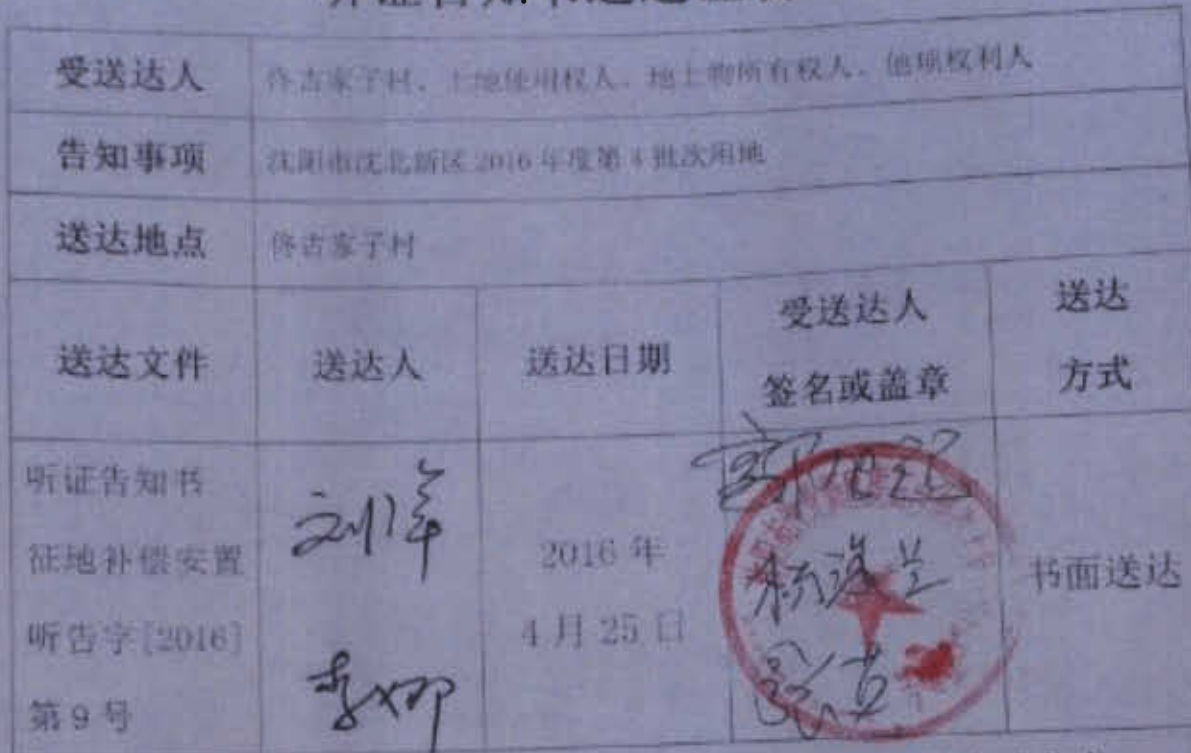 受送达人
佟古家子村、土地使用权人、地上物所有权人、他项权利人
告知事项
沈阳市沈北新区2016年度第4批次用地
送达地点
佟古家子村
送达文件
送达人
送达日期
受送达人
签名或盖章
送达
方式
听证告知书
征地补偿安置
听告字[2016]
第9号
李娜
2016年
4月25日
书面送达